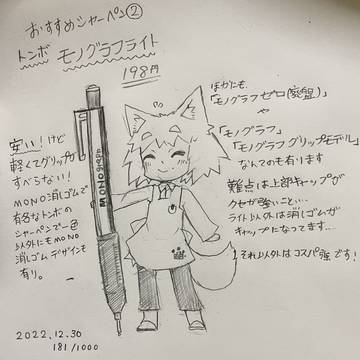 おすすめシャーペン②
トンボ モノグラフライト
198円
安い！けど
軽くてグリップが
すべらない！
MONO消しゴムで
有名なトンボの
シャーペンで一色
以外にもMONO
消しゴムデザインも
有り。
MONO graph
ほかにも、
「モノグラフゼロ(廃盤)」
や
「モノグラフ」
「モノグラフグリップモデル」
なんてのも有ります
難点は上部キャップが
クセが強いこと…
ライト以外は消しゴムが
キャップになってます…
それ以外はコスパ強です！
2022.12.30
181/1000